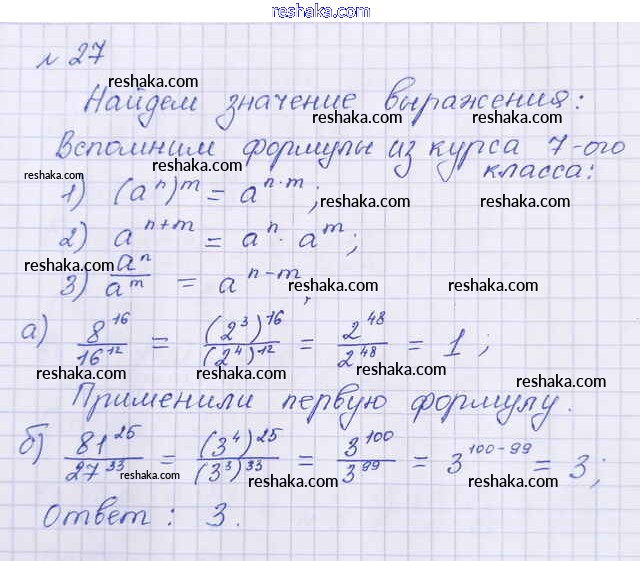 reshaka.com
№ 27
reshaka.com
Найдем значение выражения:
reshaka.com reshaka.com reshaka.com
Вспомним формулы из курса 7-ого
класса:
reshaka.com reshaka.com reshaka.com
1) (aⁿ)ᵐ = aⁿ·ᵐ;
reshaka.com reshaka.com reshaka.com
2) aⁿ⁺ᵐ = aⁿ · aᵐ;
reshaka.com
3) aⁿ/aᵐ = aⁿ⁻ᵐ,
reshaka.com reshaka.com
а) 8¹⁶/16¹² = (2³)¹⁶/(2⁴)¹² = 2⁴⁸/2⁴⁸ = 1;
reshaka.com reshaka.com reshaka.com
Применили первую формулу.
б) 81²⁵/27³³ = (3⁴)²⁵/(3³)³³ = 3¹⁰⁰/3⁹⁹ = 3¹⁰⁰⁻⁹⁹ = 3;
reshaka.com reshaka.com reshaka.com reshaka.com
Ответ: 3.